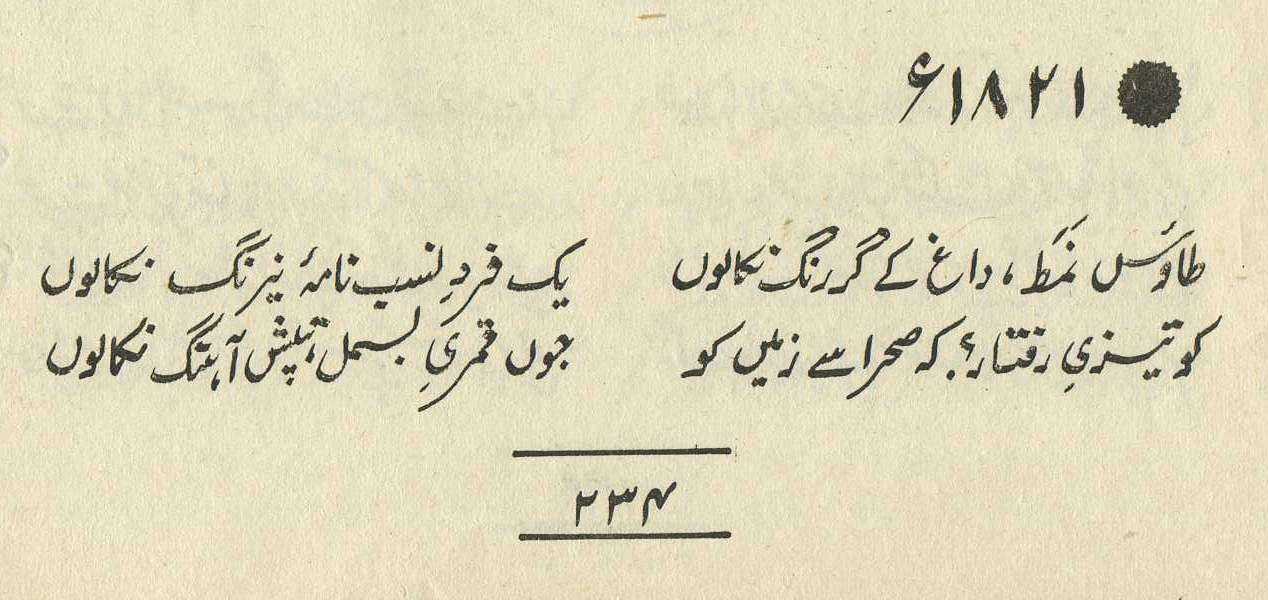 ۱۸۲۱ء
طاؤس نمَط، داغ کے گر رنگ نکالوں یک فردِ نسب نامۂ نیرنگ نکالوں
کو تیزیِ رفتار؟ کہ صحرا سے زمیں کو جوں قمریِ بسمل، تپش آہنگ نکالوں
۲۳۴